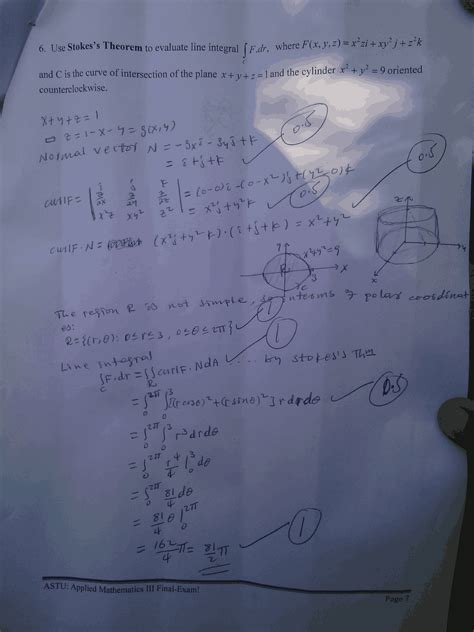 6. Use Stokes's Theorem to evaluate line integral ∫_C F.dr, where F(x, y, z) = x²zi + xy²j + z²k
and C is the curve of intersection of the plane x + y + z = 1 and the cylinder x² + y² = 9 oriented
counterclockwise.
x+y+z=1
⇒ z=1-x-y=g(x,y)
Normal vector N = -gxi - gyj + k
= i+j+k
0.5
curlF = | i j k ∂/∂x ∂/∂y ∂/∂z x²z xy² z² | = (0-0)i - (0-x²)j + (y²-0)k
= x²j + y²k
0.5
0.5
curlF.N = (x²j+y²k).(i+j+k) = x²+y²
y x²+y²=9
R 3 x
C
z
x y
The region R is not simple, so interms of polar coordinat
es:
R={(r,θ): 0≤r≤3, 0≤θ≤2π}
1
Line integral
∫_C F.dr = ∬_R curlF.NdA ... by stokes's Thm
1
= ∫_0^2π ∫_0^3 [(rcosθ)²+(rsinθ)²] r dr dθ
0.5
= ∫_0^2π ∫_0^3 r³ dr dθ
= ∫_0^2π r⁴/4 |_0^3 dθ
= ∫_0^2π 81/4 dθ
= 81/4 θ |_0^2π
= 162/4 π = 81/2 π
1
ASTU: Applied Mathematics III Final-Exam!
Page 7